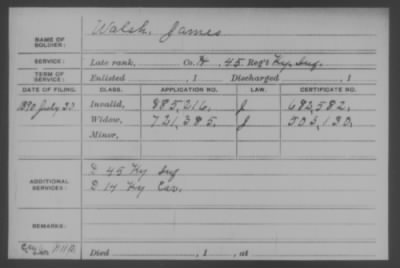 NAME OF SOLDIER: Walsh, James
SERVICE: Late rank, Co. H, 45 Reg't Ky. Inf.
TERM OF SERVICE: Enlisted , 1 Discharged , 1
DATE OF FILING. CLASS. APPLICATION NO. LAW. CERTIFICATE NO.
1890 July 23 Invalid, 885,216. J 682,582.
Widow, 721,385. J 503,130.
Minor,
ADDITIONAL SERVICES: 45 Ky Inf
D 14 Ky Cav.
REMARKS:
Died , 1 , at